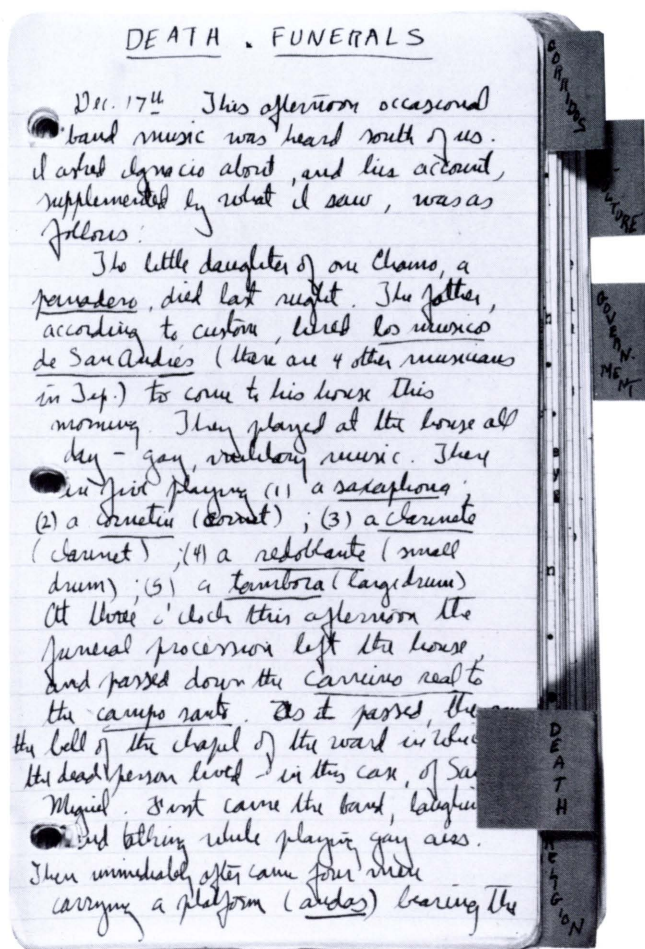 DEATH . FUNERALS
Dec. 17th This afternoon occasional
band music was heard south of us.
I asked Ignacio about, and his account,
supplemented by what I saw, was as
follows:
The little daughter of one Chano, a
panadero, died last night. The father,
according to custom, hired los musicos
de San Andrés (there are 4 other musicians
in Tep.) to come to his house this
morning. They played at the house all
day - gay, military music. There
five playing (1) a saxaphone;
(2) a cornetin (cornet); (3) a clarinete
(clarinet); (4) a redoblante (small
drum); (5) a tambora (large drum)
At three o'clock this afternoon the
funeral procession left the house,
and passed down the camino real to
the campo santo. As it passed, the
the bell of the chapel of the ward in
the dead person lived - in this case, of San
Miguel. First came the band,
and talking while playing gay airs.
Then immediately after came four men
carrying a platform (andas) bearing the
CORRIDOS
GOVERNMENT
DEATH
RELIGION